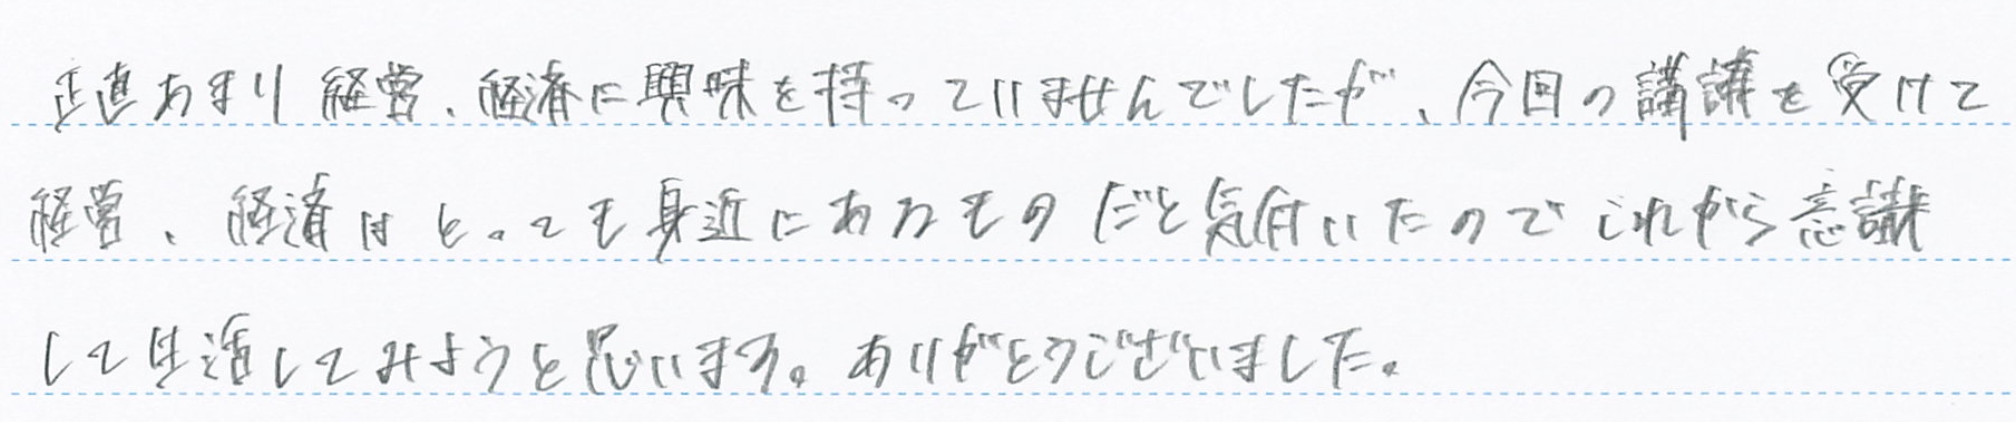 正直あまり経営、経済に興味を持っていませんでしたが、今回の講講を受けて
経営、経済はとっても身近にあるものだと気付いたのでこれから意識
して生活してみようと思います。ありがとうございました。